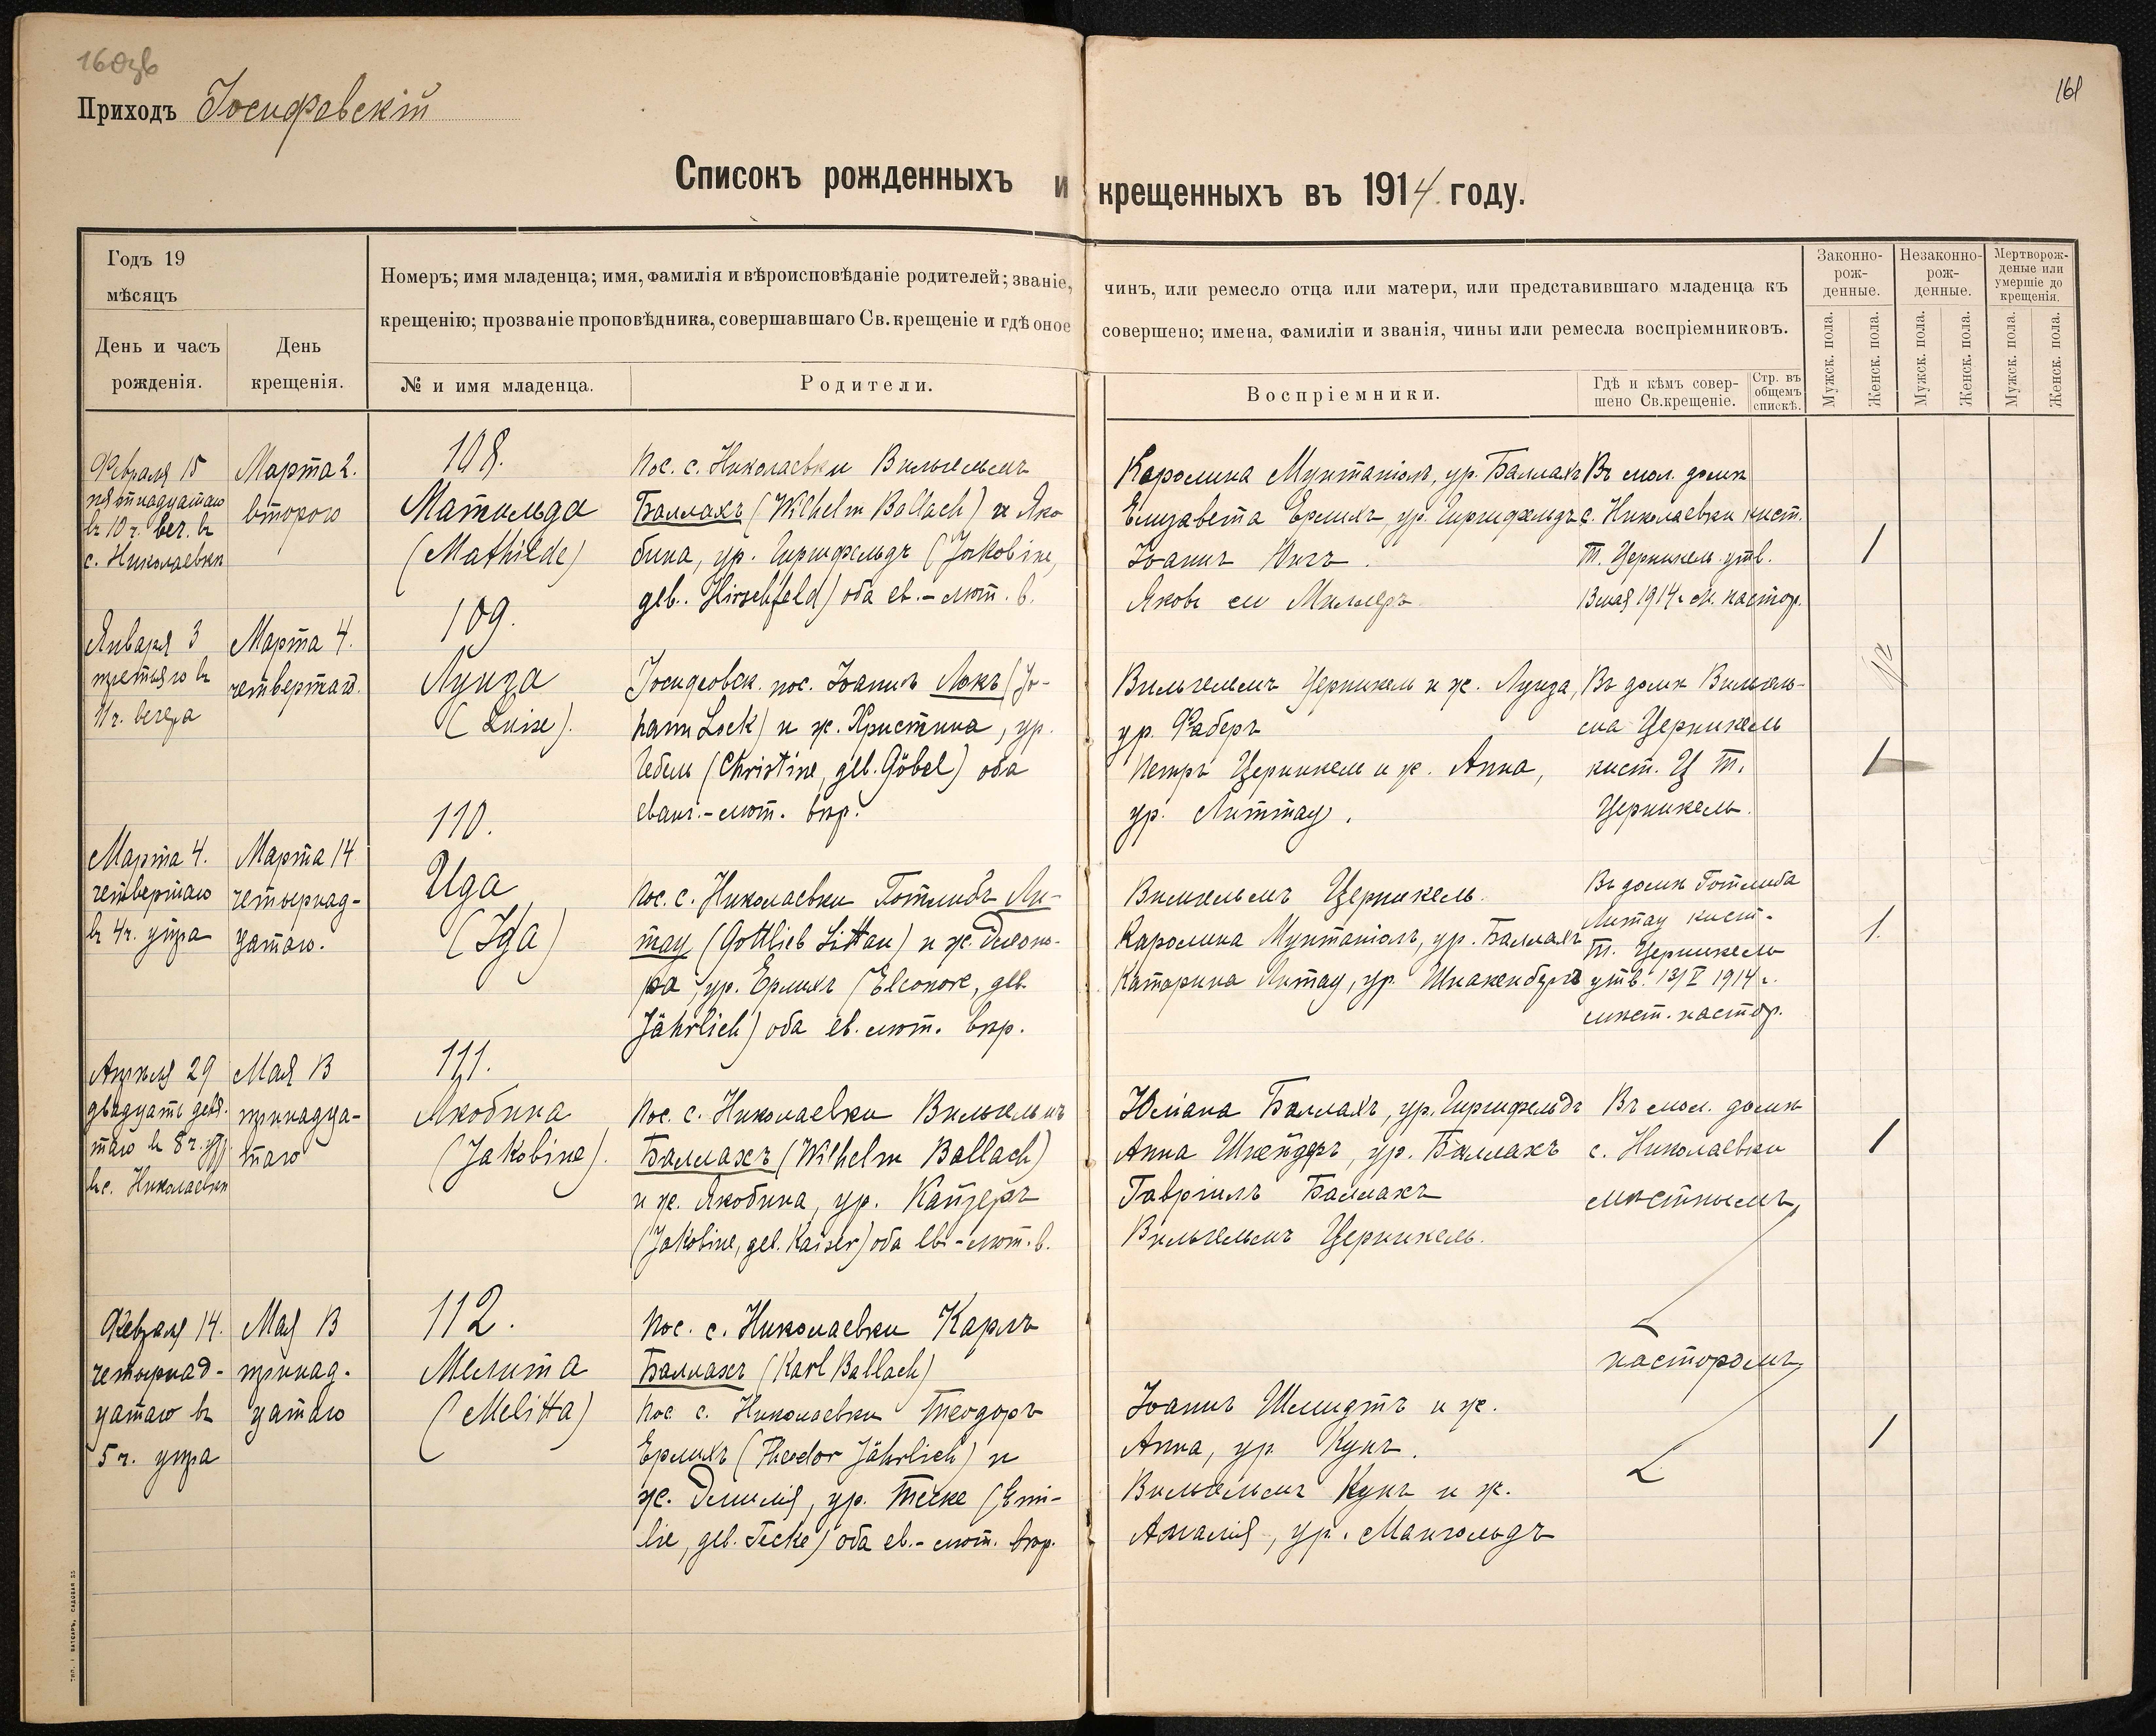 160зв
161
Приходъ Іосифовскій
Списокъ рожденныхъ и крещенныхъ въ 1914 году.
Годъ 19
мѣсяцъ
День и часъ
рожденія.
День
крещенія.
Номеръ; имя младенца; имя, фамилія и вѣроисповѣданіе родителей; званіе, чинъ, или ремесло отца или матери, или представившаго младенца къ
крещенію; прозваніе проповѣдника, совершавшаго Св. крещеніе и гдѣ оное совершено; имена, фамиліи и званія, чины или ремесла воспріемниковъ.
№ и имя младенца.
Родители.
Воспріемники.
Гдѣ и кѣмъ совер-
шено Св. крещеніе.
Стр. въ
общемъ
спискѣ.
Законно-
рож-
денные.
Незаконно-
рож-
денные.
Мертворож-
денные или
умершіе до
крещенія.
Мужск. пола.
Женск. пола.
Мужск. пола.
Женск. пола.
Мужск. пола.
Женск. пола.
Февраля 15
пятнадцатаго
въ 10 ч. веч. въ
с. Николаевки
Марта 2.
второго
108.
Матильда
(Mathilde)
Пос. с. Николаевки Вильгельмъ
Баллахъ (Wilhelm Ballach) и Яко
бина, ур. Гиршфельдъ (Jakobine,
geb. Hirschfeld) оба ев.-лют. в.
Каролина Мунтаніолъ, ур. Баллахъ
Елизавета Ерлихъ, ур. Гиршфельдъ
Іоаннъ
Яковъ Миллеръ
Въ мол. домѣ
с. Николаевки кист.
Т. Церникель утв.
13 мая 1914 г. м. пастор.
1
Января 3
третьяго въ
11 ч. вечера
Марта 4.
четвертаго.
109.
Луиза
(Luise).
Іосифовск. пос. Іоаннъ Локъ (Jo-
hann Lock) и ж. Христина, ур.
Гебель (Christine, geb. Göbel) оба
еванг.-лют. вѣр.
Вильгельмъ Церникель и ж. Луиза,
ур. Фаберъ
Петръ Церникель и ж. Анна,
ур. Литтау.
Въ домѣ Вильгель-
ма Церникель
кист. Т.
Церникель.
1
Марта 4.
четвертаго
въ 4 ч. утра
Марта 14
четырнад-
цатаго.
110.
Ида
(Ida)
Пос. с. Николаевки Готлибъ Ли-
тау (Gottlieb Littau) и ж. Элеоно-
ра, ур. Ерлихъ (Eleonore, geb.
Jährlich) оба ев. лют. вѣр.
Вильгельмъ Церникель.
Каролина Мунтаніолъ, ур. Баллахъ
Катарина Литау, ур. Шнакенбургъ
Въ домѣ Готлиба
Литау кист.
Т. Церникель
утв. 13/V 1914 г.
мѣст. пастор.
1.
Апрѣля 29
двадцать девя-
таго въ 8 ч. утр.
въ с. Николаевки
Мая 13
тринадца-
таго
111.
Якобина
(Jakobine).
Пос. с. Николаевки Вильгельмъ
Баллахъ (Wilhelm Ballach)
и ж. Якобина, ур. Кайзеръ
(Jakobine, geb. Kaiser) оба ев.-лют. в.
Юліана Баллахъ, ур. Гиршфельдъ
Анна Шнейдеръ, ур. Баллахъ
Гавріилъ Баллахъ
Вильгельмъ Церникель.
Въ мол. домѣ
с. Николаевки
мѣстнымъ
1
Февраля 14.
четырнад-
цатаго въ
5 ч. утра
Мая 13
тринад-
цатаго
112.
Мелита
(Melitta)
Пос. с. Николаевки Карлъ
Баллахъ (Karl Ballach)
Пос с. Николаевки Теодоръ
Ерлихъ (Theodor Jährlich) и
ж. Эмилія, ур. Теске (Emi-
lie, geb. Teske) оба ев.-лют. вѣр.
Іоаннъ Шмидтъ и ж.
Анна, ур Кунъ.
Вильгельмъ Кунъ и ж.
Амалія, ур. Мангольдъ
пасторомъ
1